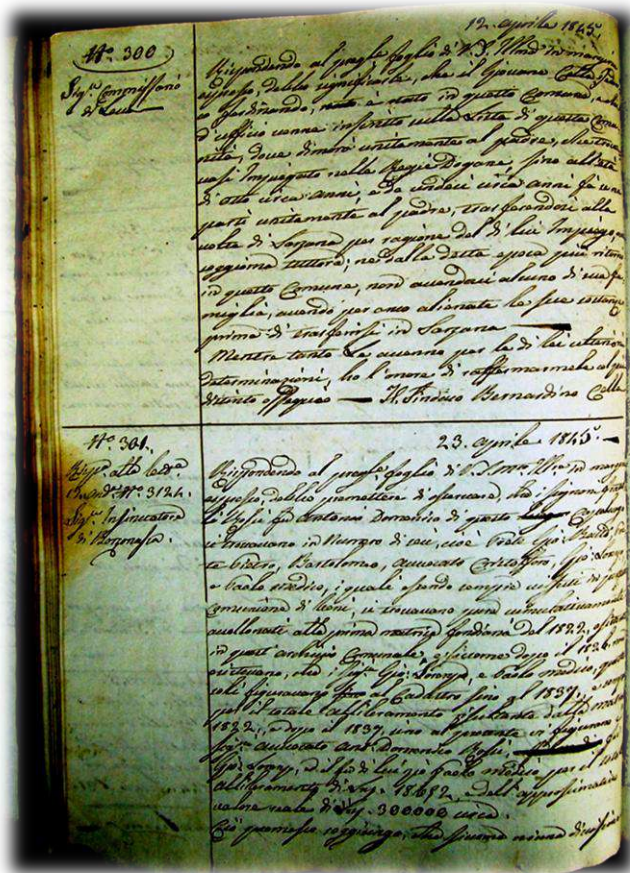 12. aprile 1845.
N.º 300
Sig.r Commissario
di Leva
Rispondendo al preg.le foglio di V. S. Ill.ma in margine
espresso, debbo significarle, che il Giovane Cella
Ferdinando, nato è stato in questo Comune, e che
d'uffizio venne inscritto nella Lista di questa Comu
nità, dove dimorò unitamente al padre, che trova
vasi Impiegato nelle Regie Dogane, sino all'età
di otto circa anni, e da undeci circa anni fà
partì unitamente al padre, trasferendosi alla
volta di Sarzana per ragione del di lui Impiego,
soggiorna tuttora; nè dalla detta epoca più ritornò
in questo Comune, non avendovi alcuno di sua fa
miglia, avendo per anco alienate le sue sostanze
prima di trasferirsi in Sarzana
Mentre tanto Le accenno per le di lei ulteriori
determinazioni, ho l'onore di raffermarmele col più
distinto ossequio — Il Sindaco Bernardino Cella
23. aprile 1845.
N.º 301.
alla
N.º 3124.
Sig.r Insinuatore
di Borzonasca.
Rispondendo al preg. foglio di V. S. Ill.ma in margine
espresso debbo premettere di osservare, che i signori
fù Antonio Domenico di questo
si trovavano in Numero di sei, cioè Prete Gio: Batta,
Pietro, Bartolomeo, Avvocato Cristoforo, Gio: Lorenzo
e Paolo medico, i quali essendo sempre vissuti in
Comunione di beni, si trovavano
alla prima matrice fondiaria del 1822,
in quest'archivio Comunale, e siccome dopo il 1826. non
esistevano, che i Sig.ri Gio: Lorenzo, e Paolo medico,
figuravano al Catastro sino al 1837,
per il totale allibramento risultante dalla matrice
1822, e dopo il 1837, sino al presente vi figurano
Avvocato Ant. Domenico
Gio: Lorenzo, ed il fù di lui zio Paolo medico per il
allibramento di 18652, e dell'approssimativo
valore reale di 300000 circa.
Ciò premesso soggiungo, che siccome niuna divisione